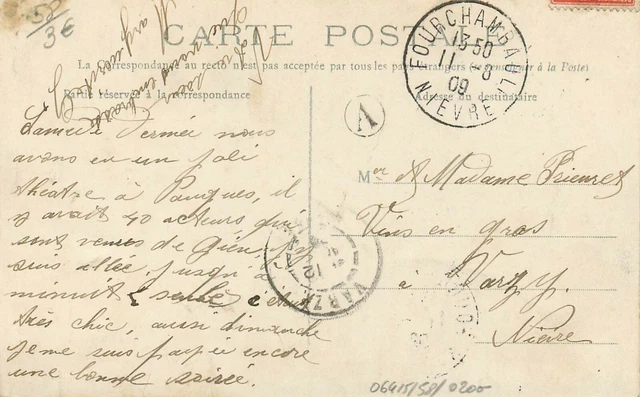 58
3€
CARTE POSTALE
La correspondance au recto n'est pas acceptée par tous les pays étrangers (se renseigner à la Poste)
Partie réservée à la correspondance
Adresse du destinataire
FOURCHAMBAULT
13-50
11 - 8
09
NIEVRE
A
Samedi Fermée nous
avons eu un joli
théâtre à Pougues, il
y avait 40 acteurs qui
sont venus de Gien, j'y
suis allée jusqu'à
minuit seule c'était
très chic, aussi dimanche
je me suis payée encore
une bonne soirée.
Mer et Madame Prieuret
Vins en gros
à Varzy.
Nièvre
VARZY
12
06415/58/0200